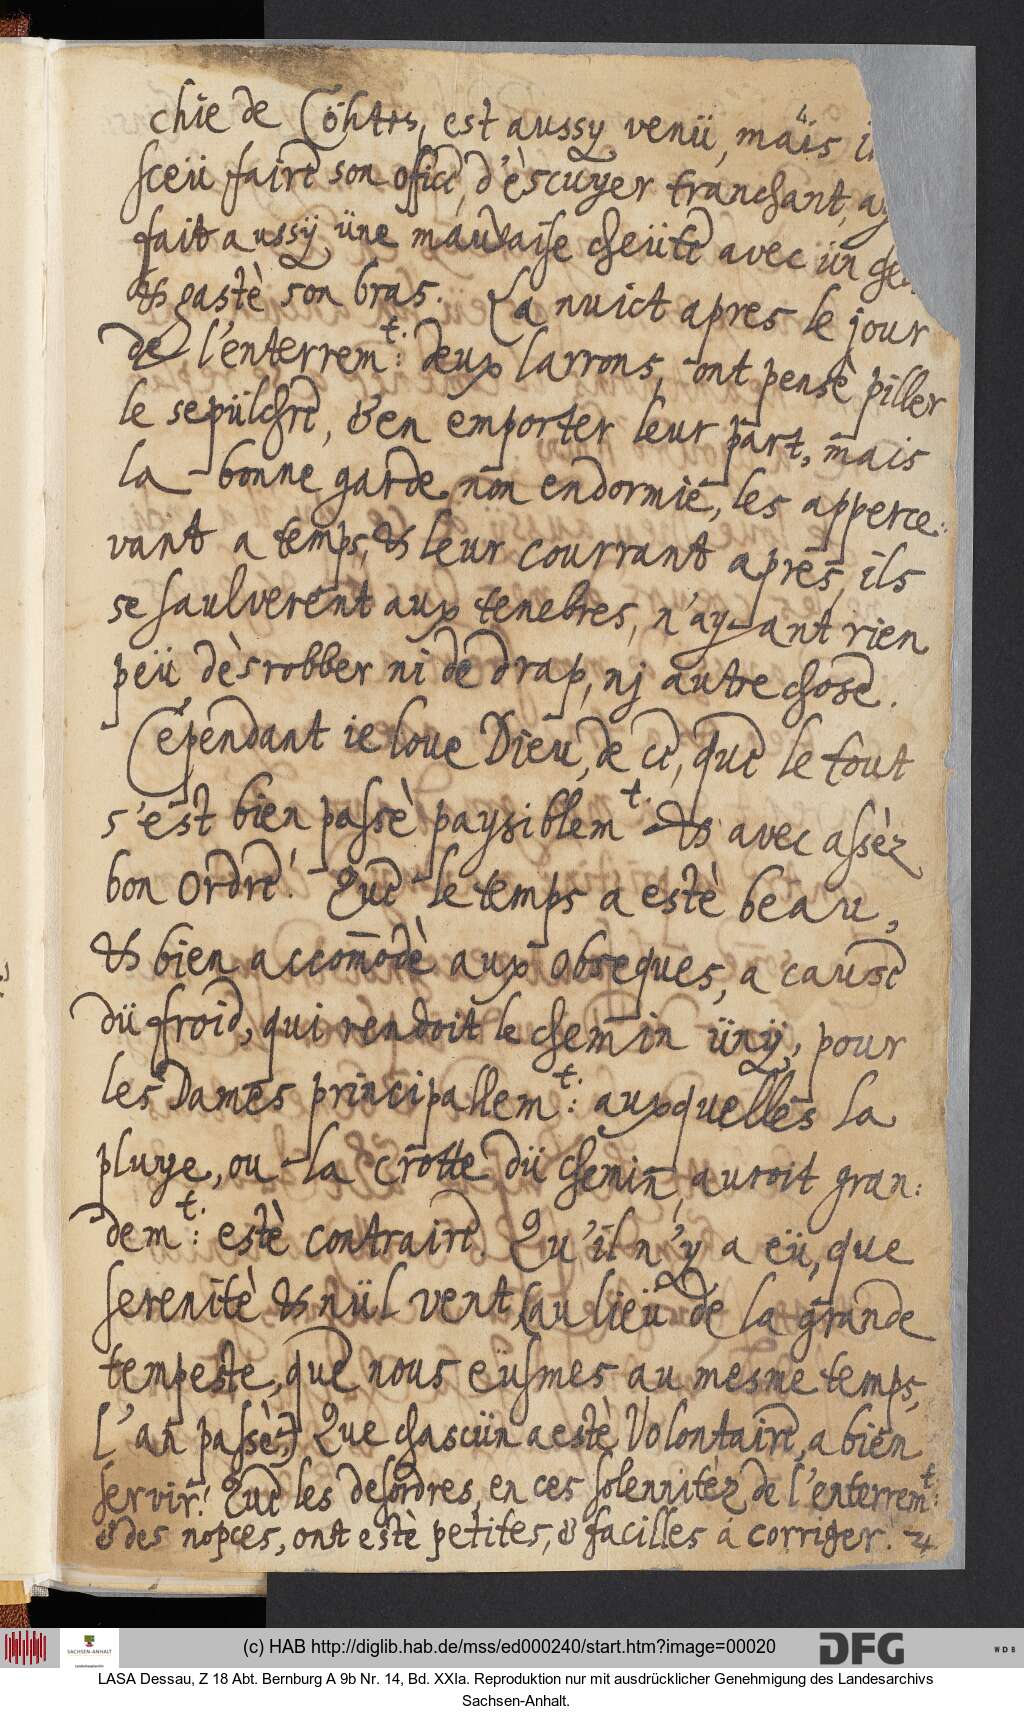 chie de Cöhten, est aussy venü, mais
sceü faire son office, d'èscuyer tranchant,
fait aussÿ üne mauvaise cheüte avec ün
& gastè son bras. La nuict apres le jour
de l'enterrem.t: deux larrons, ont pensè piller
le sepülchre, & en emporter leur part, mais
la bonne garde non endormie, les apperce:
vant a temps, & leur courrant apres, ils
se saulverent aux tenebres, n'ay-ant rien
peü dèsrobber ni de drap, nj autre chose.
Cependant ie loue Dieu, de ce, que le tout
s'est bien passè paysiblem.t & avec assèz
bon Ordre! Que le temps a estè beau,
& bien accom̄odè aux obseques, a cause
dü froid, qui rendoit le chemin ünÿ, pour
les Dames principallem.t: auxquelles la
pluye, ou la crotte dü chemin, auroit gran:
dem.t: estè contraire. Qu'il n'y a eü, que
serenitè & nül vent, (au lieü de la grande
tempeste, que nous eüsmes au mesme temps,
l'an passè.) Que chascün a estè Volontaire, a bien
servir! Que les desordres, en ces solennitèz de l'enterrem.t:
& des nopces, ont estè petites, & facilles a corriger.
(c) HAB http://diglib.hab.de/mss/ed000240/start.htm?image=00020
SACHSEN-ANHALT
DFG
WDB
LASA Dessau, Z 18 Abt. Bernburg A 9b Nr. 14, Bd. XXIa. Reproduktion nur mit ausdrücklicher Genehmigung des Landesarchivs
Sachsen-Anhalt.